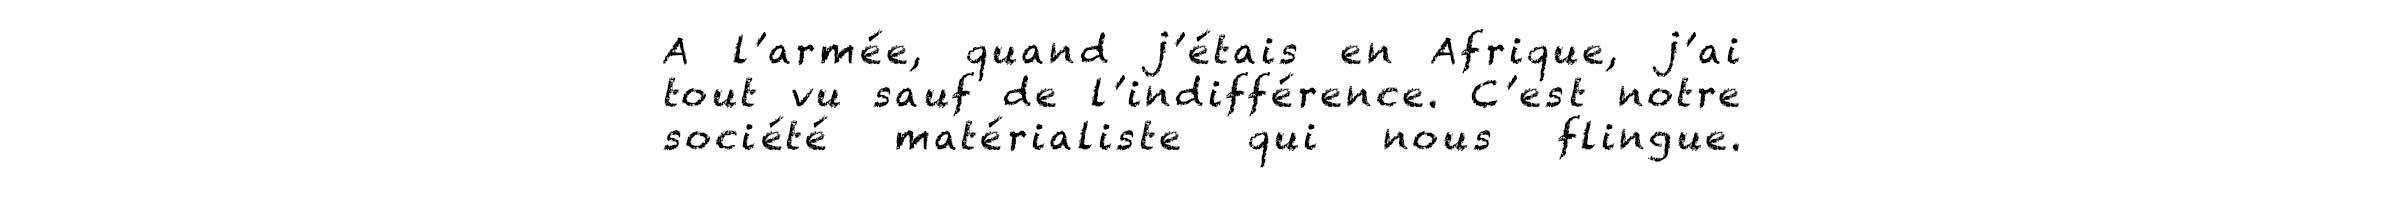 A l'armée, quand j'étais en Afrique, j'ai
tout vu sauf de l'indifférence. C'est notre
société matérialiste qui nous flingue.